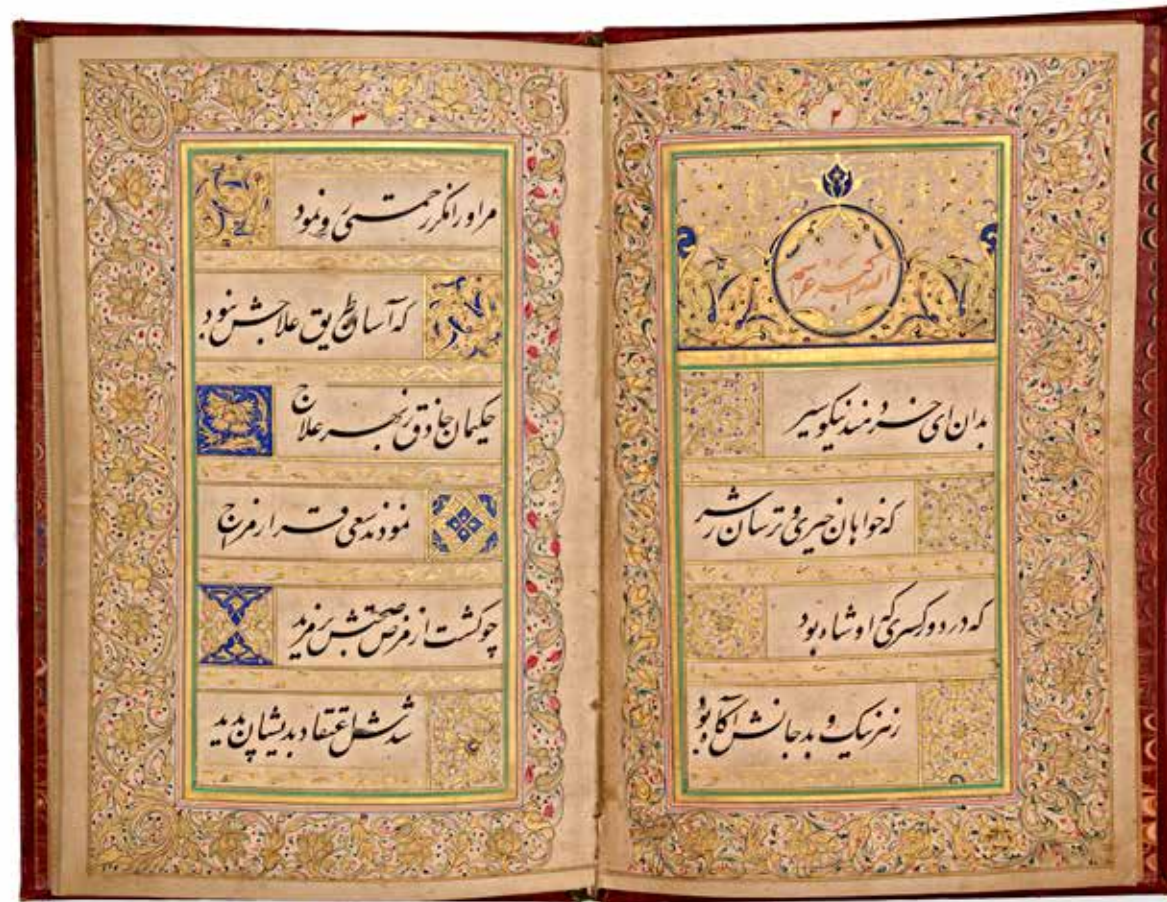 ۲
الله اکبر
بدان ای خردمند نیکو سیر
که خواهان خیری و ترسان ز شر
که در دور کسری که او شاه بود
ز هر نیک و بد جانش آگاه بود
۳
مر او را مکرر حمتی رو نمود
که آسان طریق علاجش نبود
حکیمان حاذق ز بهر علاج
نمودند سعی قرار مزج
چو گشت از مرض صحتش بر مزید
شدش اعتقاد بدیشان پدید